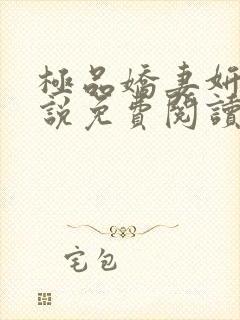 極品嬌妻妍
說免費閱讀
宅包